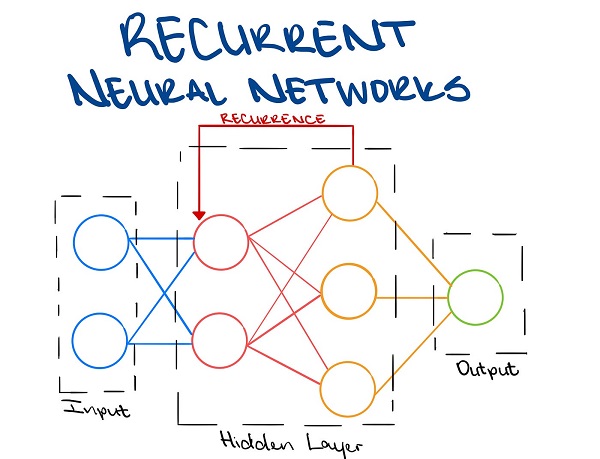 RECURRENT
NEURAL NETWORKS
RECURRENCE
Input
Hidden Layer
Output